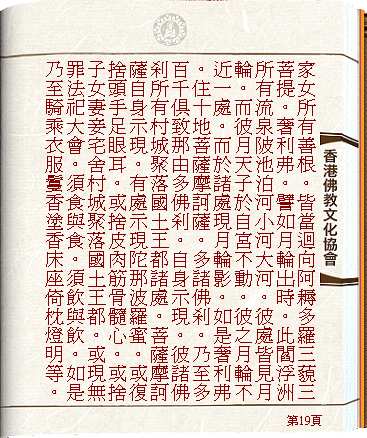 家女所有善根。皆當迴向阿耨多羅三藐三
菩提。奢利弗。譬如月輪出時。此閻浮洲
所有流泉陂池泊河小河大河。彼處皆見月
輪。而彼月天子於自宮不動。彼之月輪不
近一處。而於諸處現月輪影。如是奢利弗
。住十地菩薩摩訶薩。多諸佛剎。乃至多
百千俱致那由多佛剎。自身示現。彼諸佛
剎所有村城聚落國土王都諸處。菩薩摩訶
薩自身示現。有處示現陀那波羅蜜。或復
捨頭手足眼耳。或捨皮肉筋骨髓心。或捨
子女妻妾宅舍村城聚落國土王都。或現無
罪法祀大會。須食與食。須飲與飲。如是
乃至騎乘衣服鬘香塗香床座倚枕燈明等。
香港佛教文化協會
第19頁